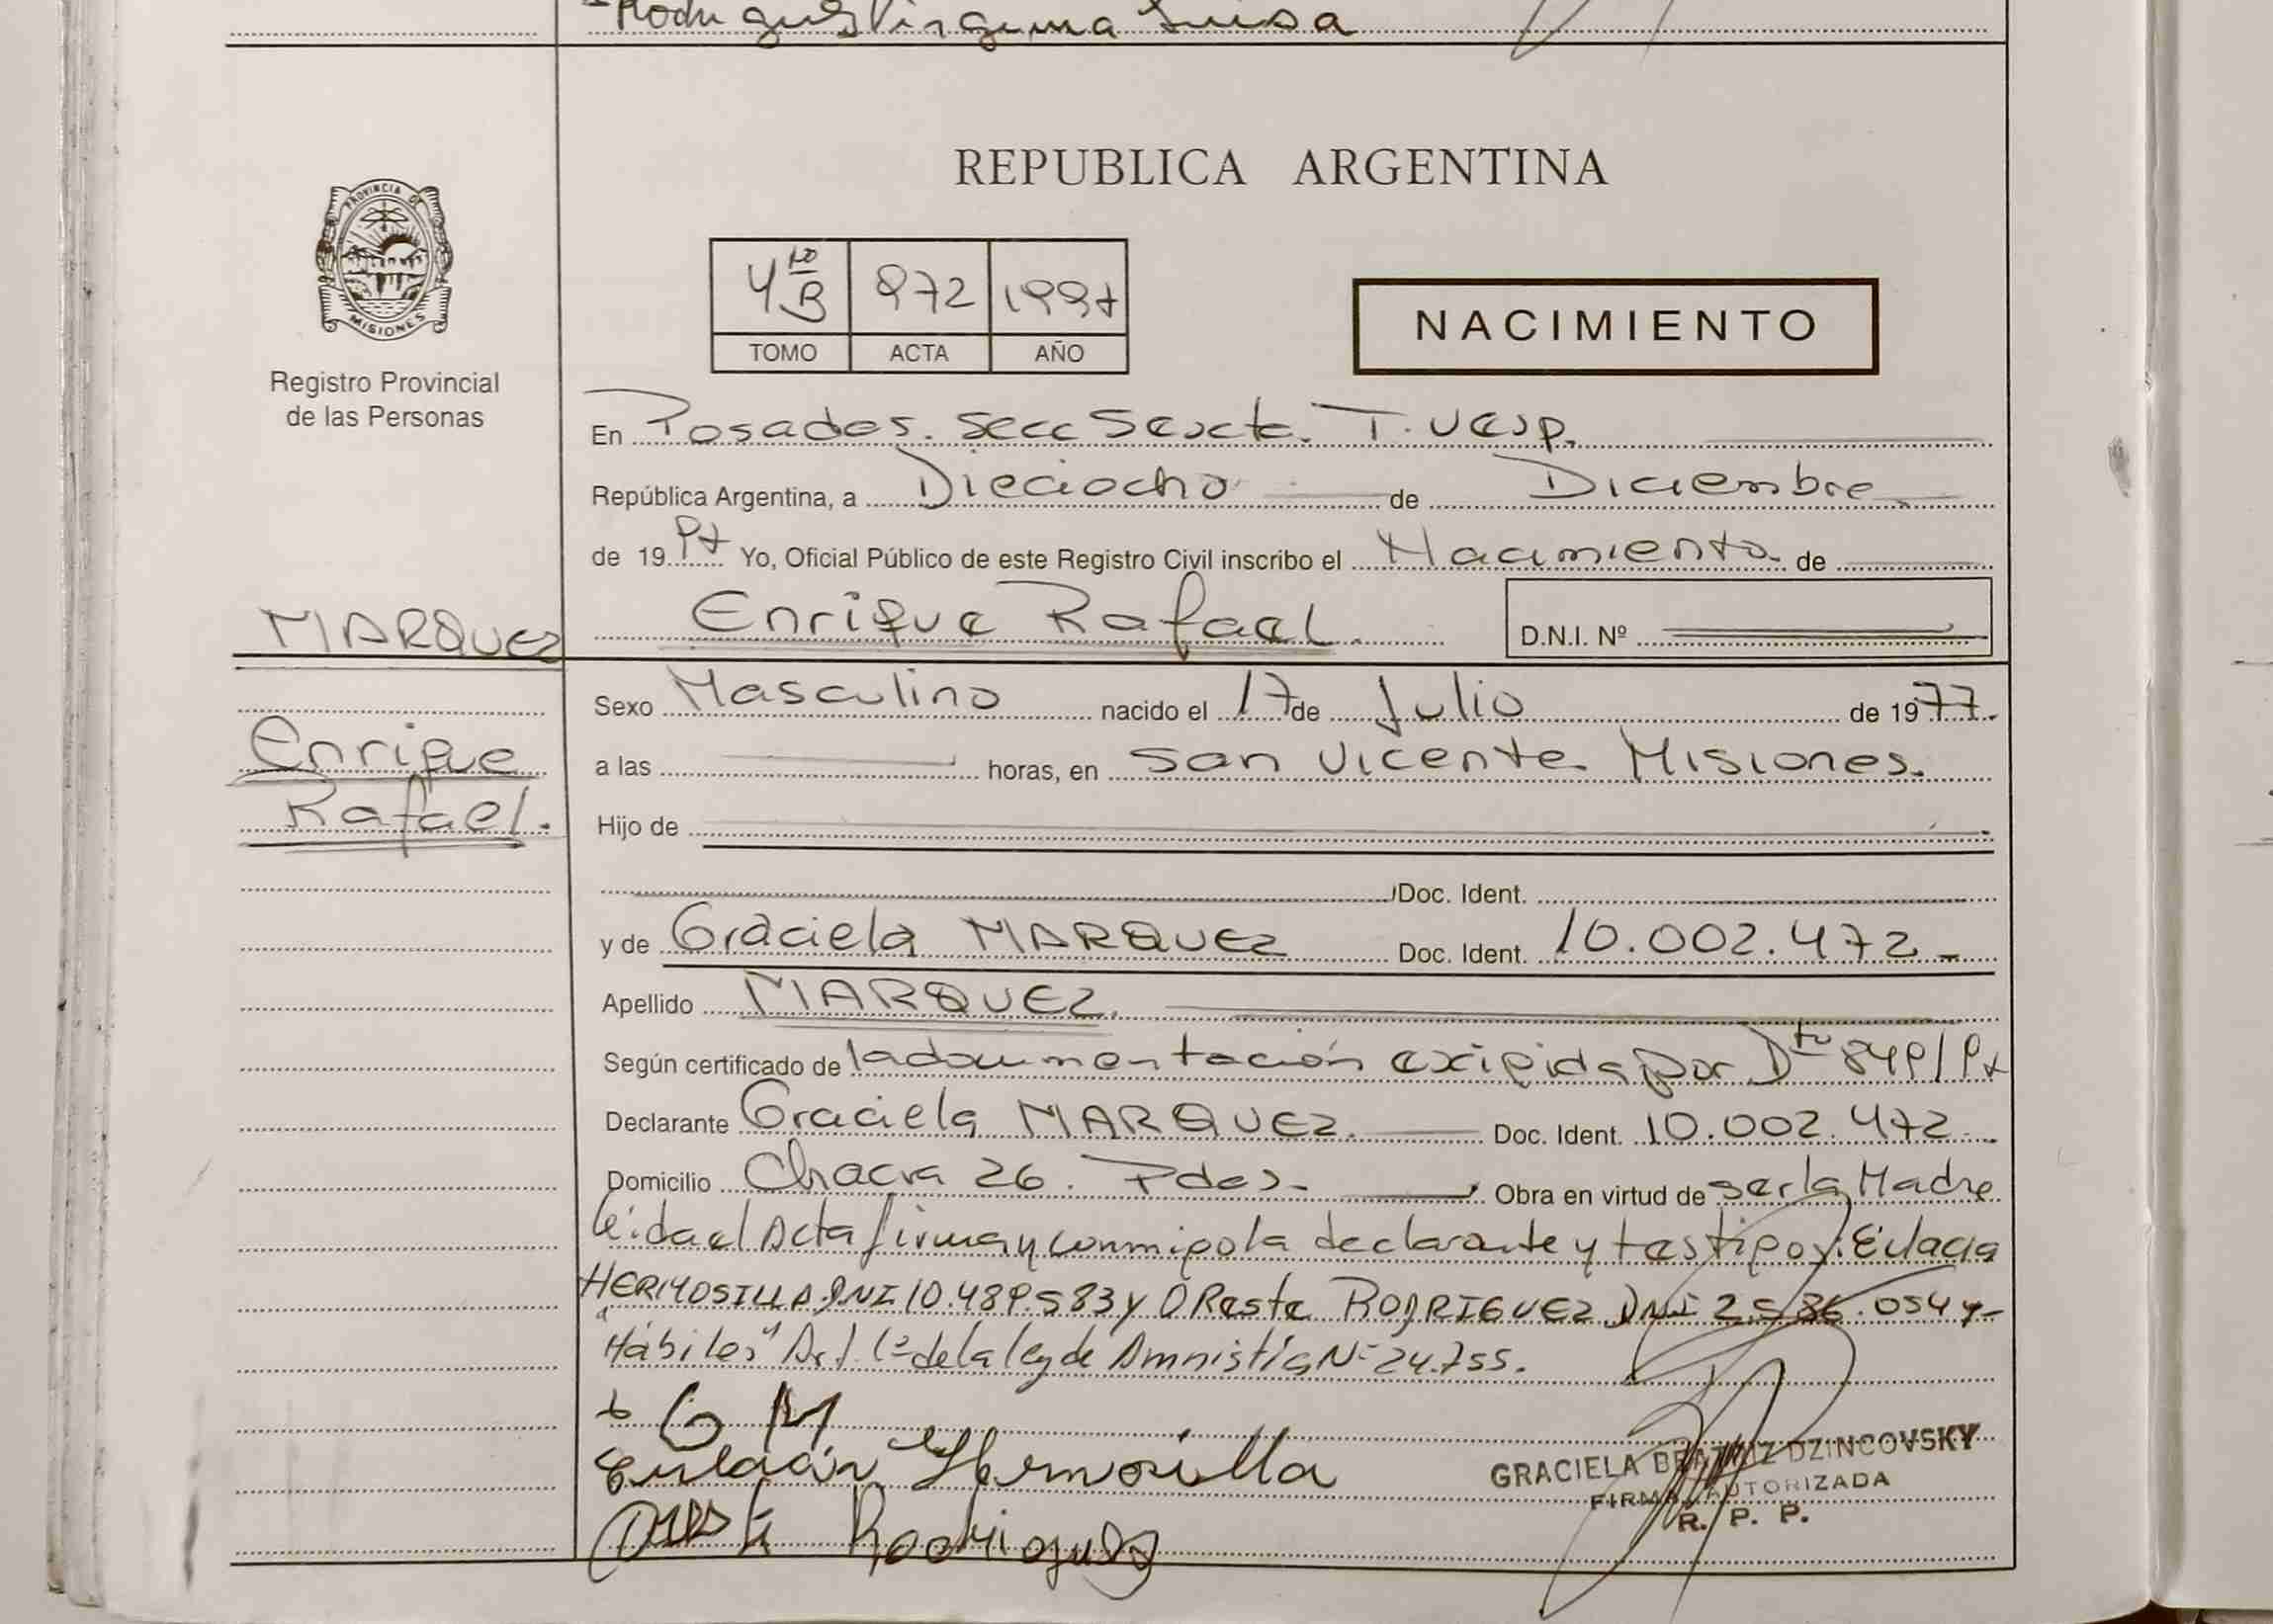 Rodriguez Virginia Luisa
REPUBLICA ARGENTINA
PROVINCIA DE
MISIONES
Registro Provincial
de las Personas
4to B 972 1997
TOMO ACTA AÑO
NACIMIENTO
En Posadas. Secc Sexta. T. Vesp.
República Argentina, a Dieciocho de Diciembre
de 1997 Yo, Oficial Público de este Registro Civil inscribo el Nacimiento de
MARQUEZ
Enrique Rafael.
D.N.I. Nº
Enrique
Rafael.
Sexo Masculino nacido el 17 de Julio de 1977.
a las horas, en San Vicente Misiones.
Hijo de
Doc. Ident.
y de Graciela MARQUEZ Doc. Ident. 10.002.472 -
Apellido MARQUEZ.
Según certificado de la documentación exigida por Dto 849/97
Declarante Graciela MARQUEZ. Doc. Ident. 10.002.472
Domicilio Chacra 26. Pdas. Obra en virtud de ser la Madre
Leída el Acta firman conmigo la declarante y testigos: Eulacia
HERMOSILLA DNI 10.489.583 y OReste RODRIGUEZ DNI 2.586.054 y-
"Hábiles" Art. 1º de la ley de Amnistía Nº 24.755.
G M
Hermosilla
Rodriguez
GRACIELA BEATRIZ DZINCOVSKY
FIRMA AUTORIZADA
R. P. P.